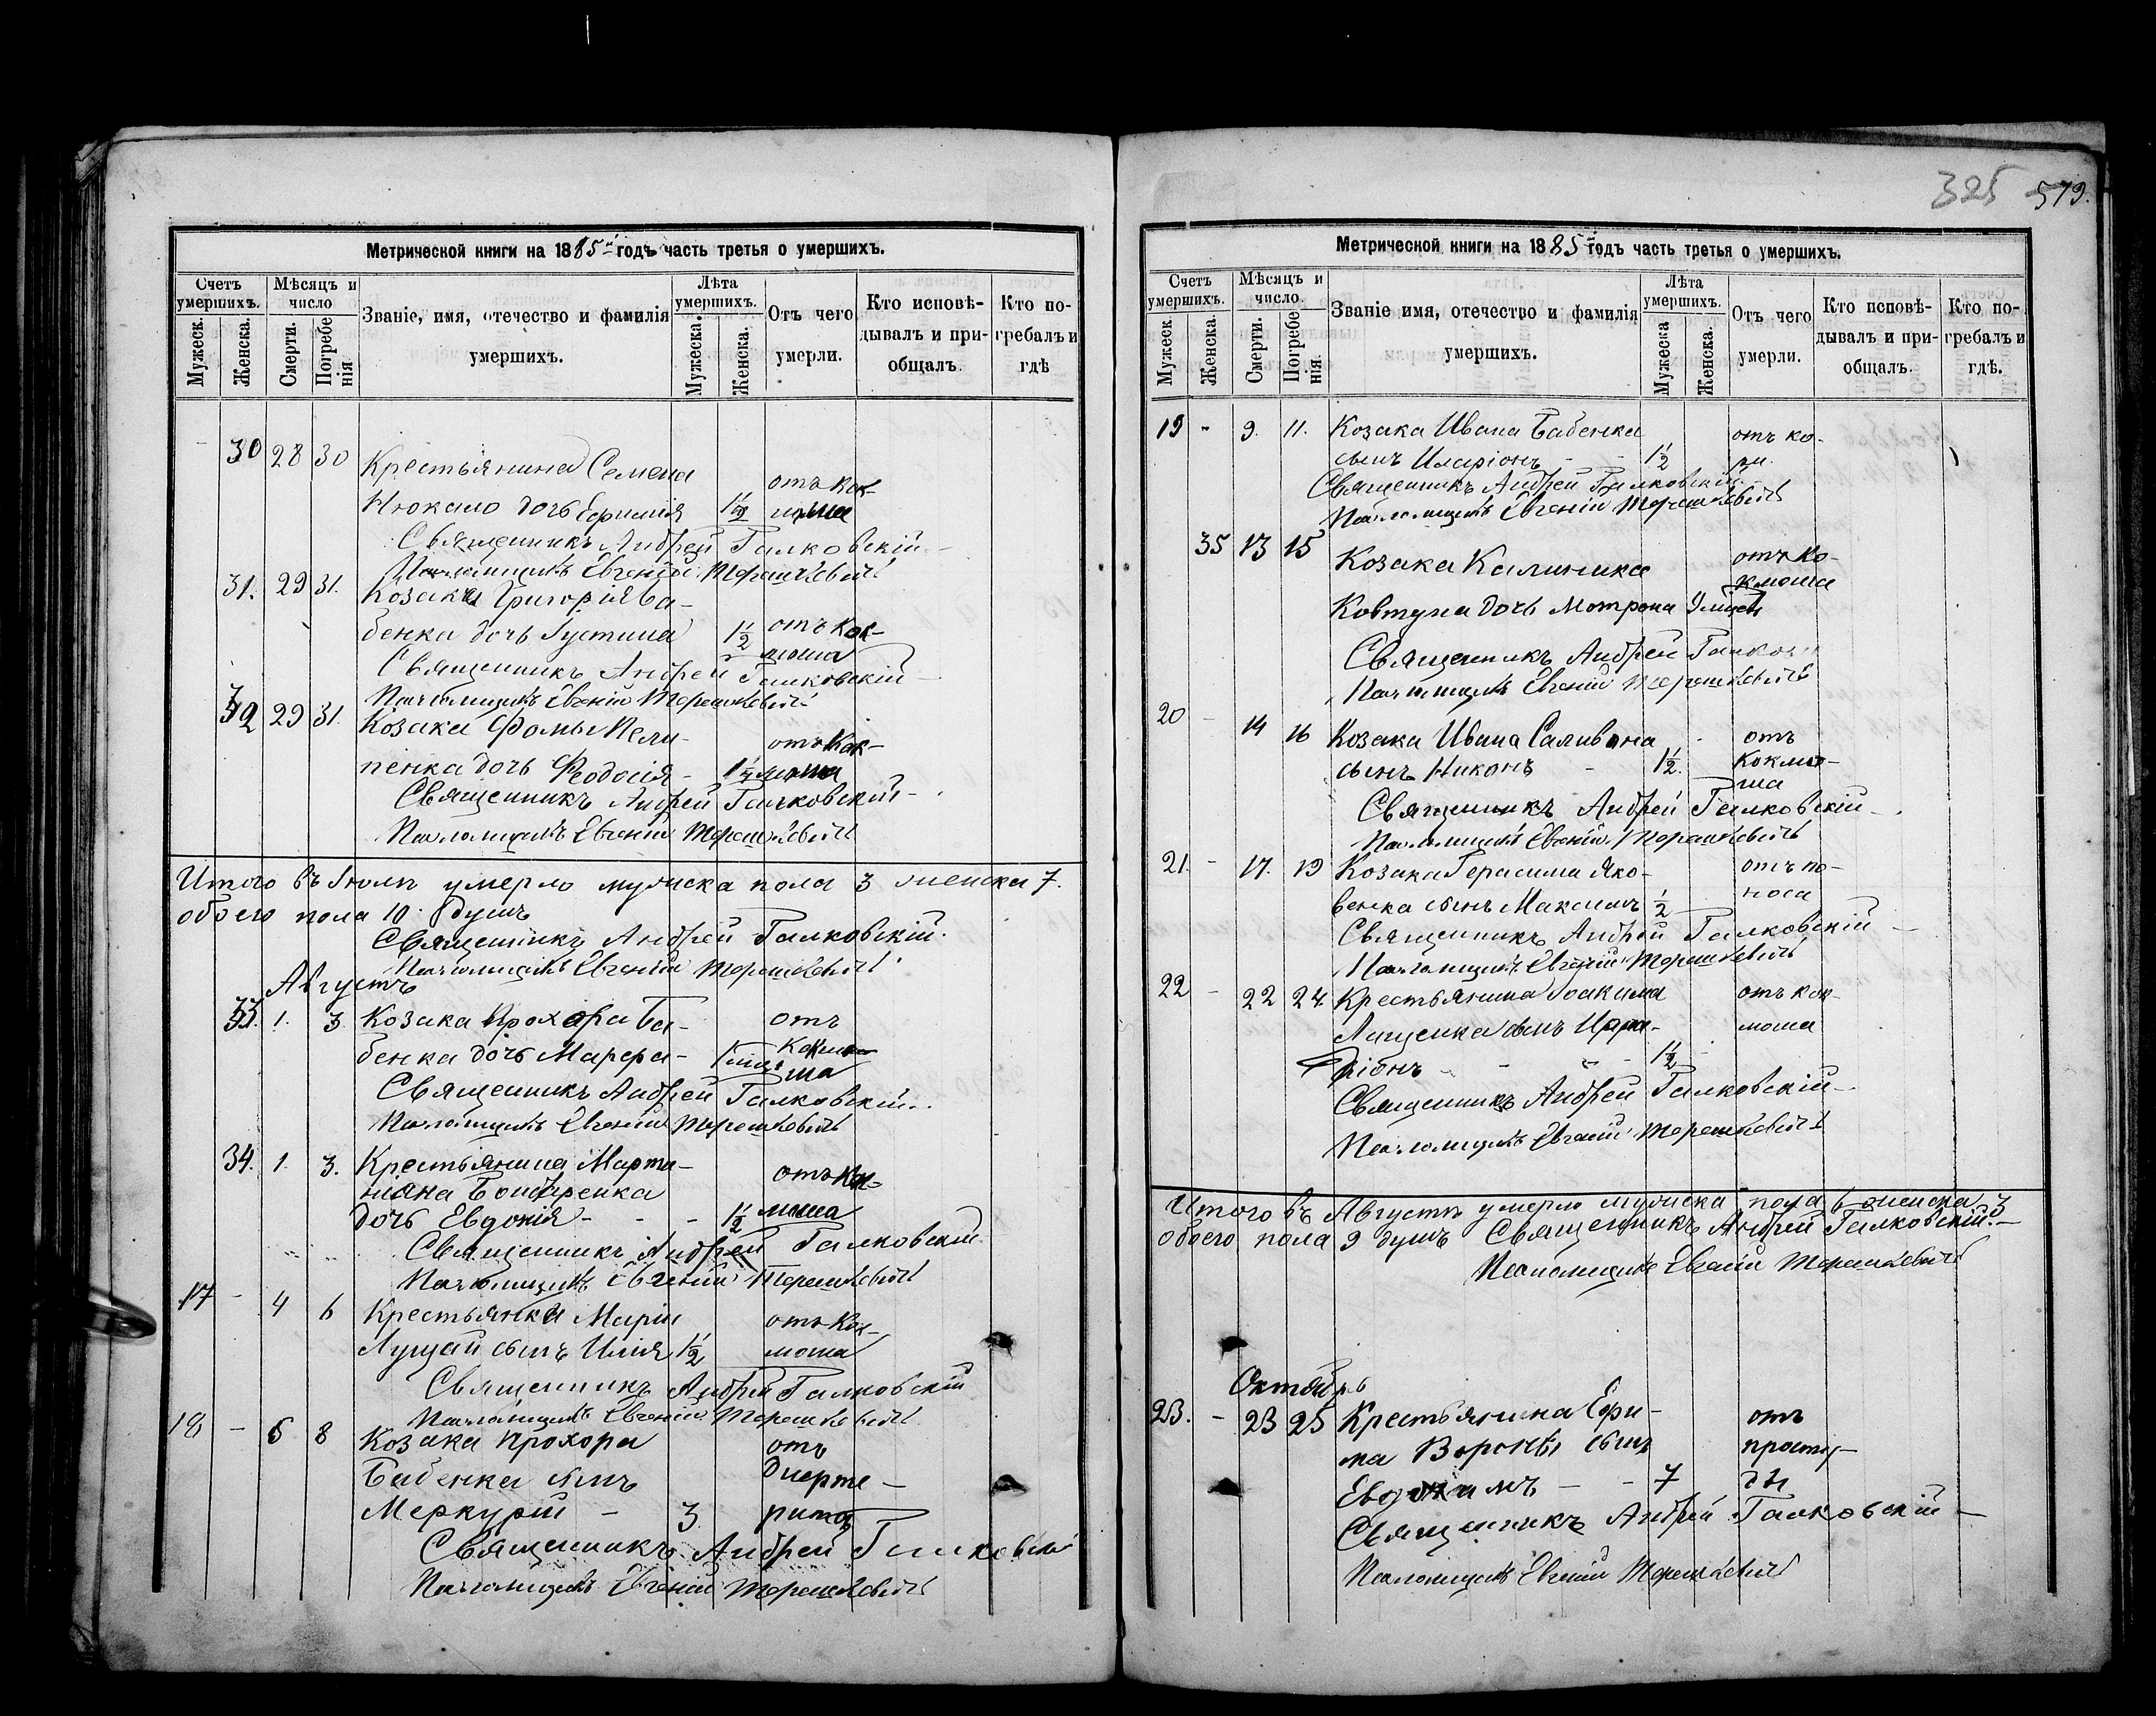 Метрической книги на 1885й годъ часть третья о умершихъ.
Счетъ умершихъ.
Мѣсяцъ и число
Званіе, имя, отечество и фамилія умершихъ.
Лѣта умершихъ.
Отъ чего умерли.
Кто исповѣдывалъ и приобщалъ.
Кто погребалъ и гдѣ
Мужеск. Женска. Смерти. Погребенія Мужеска. Женска.
30 28 30 Крестьянина Семена
отъ кок-
дочь 1½ люша
Священникъ Андрей Галковскій
Псаломщикъ Евгеній Терешкевичъ
31. 29 31. Козака Григорія Ба-
бенка дочь Іустина 1½ отъ кок-
люша
Священникъ Андрей Галковскій
Псаломщикъ Евгеній Терешкевичъ
32 29 31. Козака Фомы Пели-
отъ кок-
пенка дочь Феодосія - люша
Священникъ Андрей Галковскій
Псаломщикъ Евгеній Терешкевичъ
Итого въ Іюлѣ умерло мужеска пола 3 женска 7.
обоего пола 10 душъ
Священникъ Андрей Галковскій.
Псаломщикъ Евгеній Терешкевичъ
Августъ
33. 1. 3 Козака Прохора Ба- отъ
бенка дочь Марфа- коклю-
ша
Священникъ Андрей Галковскій
Псаломщикъ Евгеній Терешкевичъ
34. 1. 3. Крестьянина Марти-
ніана Бондаренка отъ кок-
дочь Евдокія - - - 1½ люша
Священникъ Андрей Галковскій
Псаломщикъ Евгеній Терешкевичъ
17 - 4 6 Крестьянки Маріи отъ кок-
Лущай сынъ Илія 1½ люша
Священникъ Андрей Галковскій
Псаломщикъ Евгеній Терешкевичъ
18 - 6 8 Козака Прохора отъ
Бабенка сынъ дифте-
Меркурій - 3 рита
Священникъ Андрей Галковскій
Псаломщикъ Евгеній Терешкевичъ
325 579.
Метрической книги на 1885й годъ часть третья о умершихъ.
Счетъ умершихъ.
Мѣсяцъ и число.
Званіе имя, отечество и фамилія умершихъ.
Лѣта умершихъ.
Отъ чего умерли.
Кто исповѣдывалъ и приобщалъ.
Кто погребалъ и гдѣ.
Мужеск. Женска. Смерти. Погребенія. Мужеска Женска.
19 - 9. 11. Козака Ивана Бабенка отъ ко-
сынъ Иларіонъ - - 1½ ри.
Священникъ Андрей Галковскій
Псаломщикъ Евгеній Терешкевичъ
35 13 15 Козака Калиника отъ ко-
клюша
Ковтуна дочь Мотрона 9 мѣсяц
Священникъ Андрей Галковскій
Псаломщикъ Евгеній Терешкевичъ
20 - 14 16 Козака Ивана Саливона - отъ
сынъ Никонъ - 1½. коклю-
ша
Священникъ Андрей Галковскій
Псаломщикъ Евгеній Терешкевичъ
21. - 17. 19 Козака Герасима Яко- отъ по-
венка сынъ Максимъ ½ носа
Священникъ Андрей Галковскій
Псаломщикъ Евгеній Терешкевичъ
22 - 22 24. Крестьянина Іоакима отъ кок-
Лященка сынъ люша
ріонъ - - - 1½
Священникъ Андрей Галковскій
Псаломщикъ Евгеній Терешкевичъ
Итого въ Августѣ умерло мужеска пола 6 женска 3
обоего пола 9 душъ Священникъ Андрей Галковскій.
Псаломщикъ Евгеній Терешкевичъ
Октябрь
23. - 23 25 Крестьянина Ефи- отъ
ма Вороны сынъ просту-
Евдокимъ - - 7 ды
Священникъ Андрей Галковскій
Псаломщикъ Евгеній Терешкевичъ